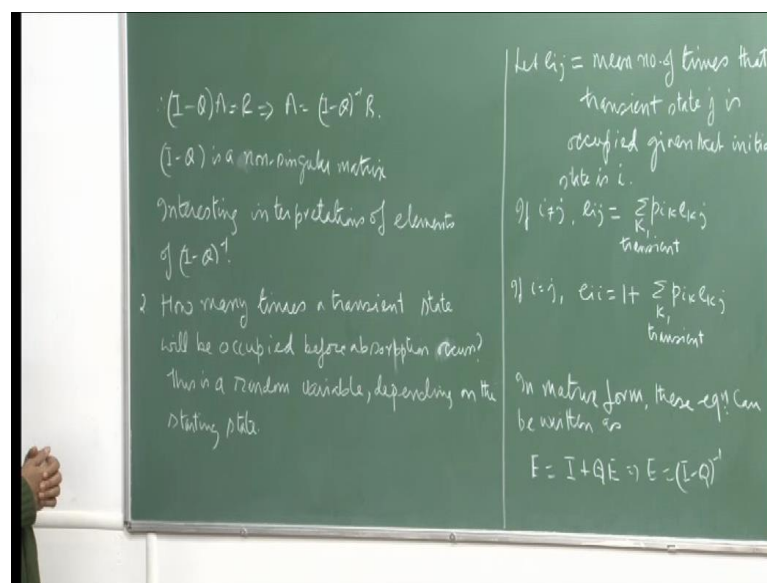 ∴ (I-Q)A = R ⇒ A = (I-Q)⁻¹ R.
(I-Q) is a non-singular matrix
Interesting interpretations of elements
of (I-Q)⁻¹.
2. How many times a transient state
will be occupied before absorption occurs?
This is a random variable, depending on the
starting state.
Let eij = mean no. of times that
transient state j is
occupied given that initia
state is i.
If i≠j, eij = Σ pik ekj
k,
transient
If i=j, eii = 1 + Σ pik ekj
k,
transient
In matrix form, these eqn. can
be written as
E = I + QE ⇒ E = (I-Q)⁻¹